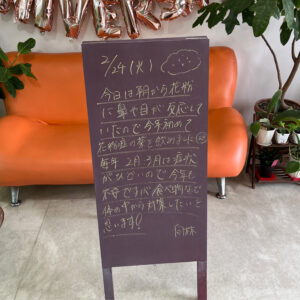 2/24 (火)
今日は朝から花粉
に鼻や目が反応して
いたので今年初めて
花粉症の薬を飲みました
毎年 2月 3月に症状
がひどいので今年も
不安ですが食べ物などで
体の中から対策したいと
思います!